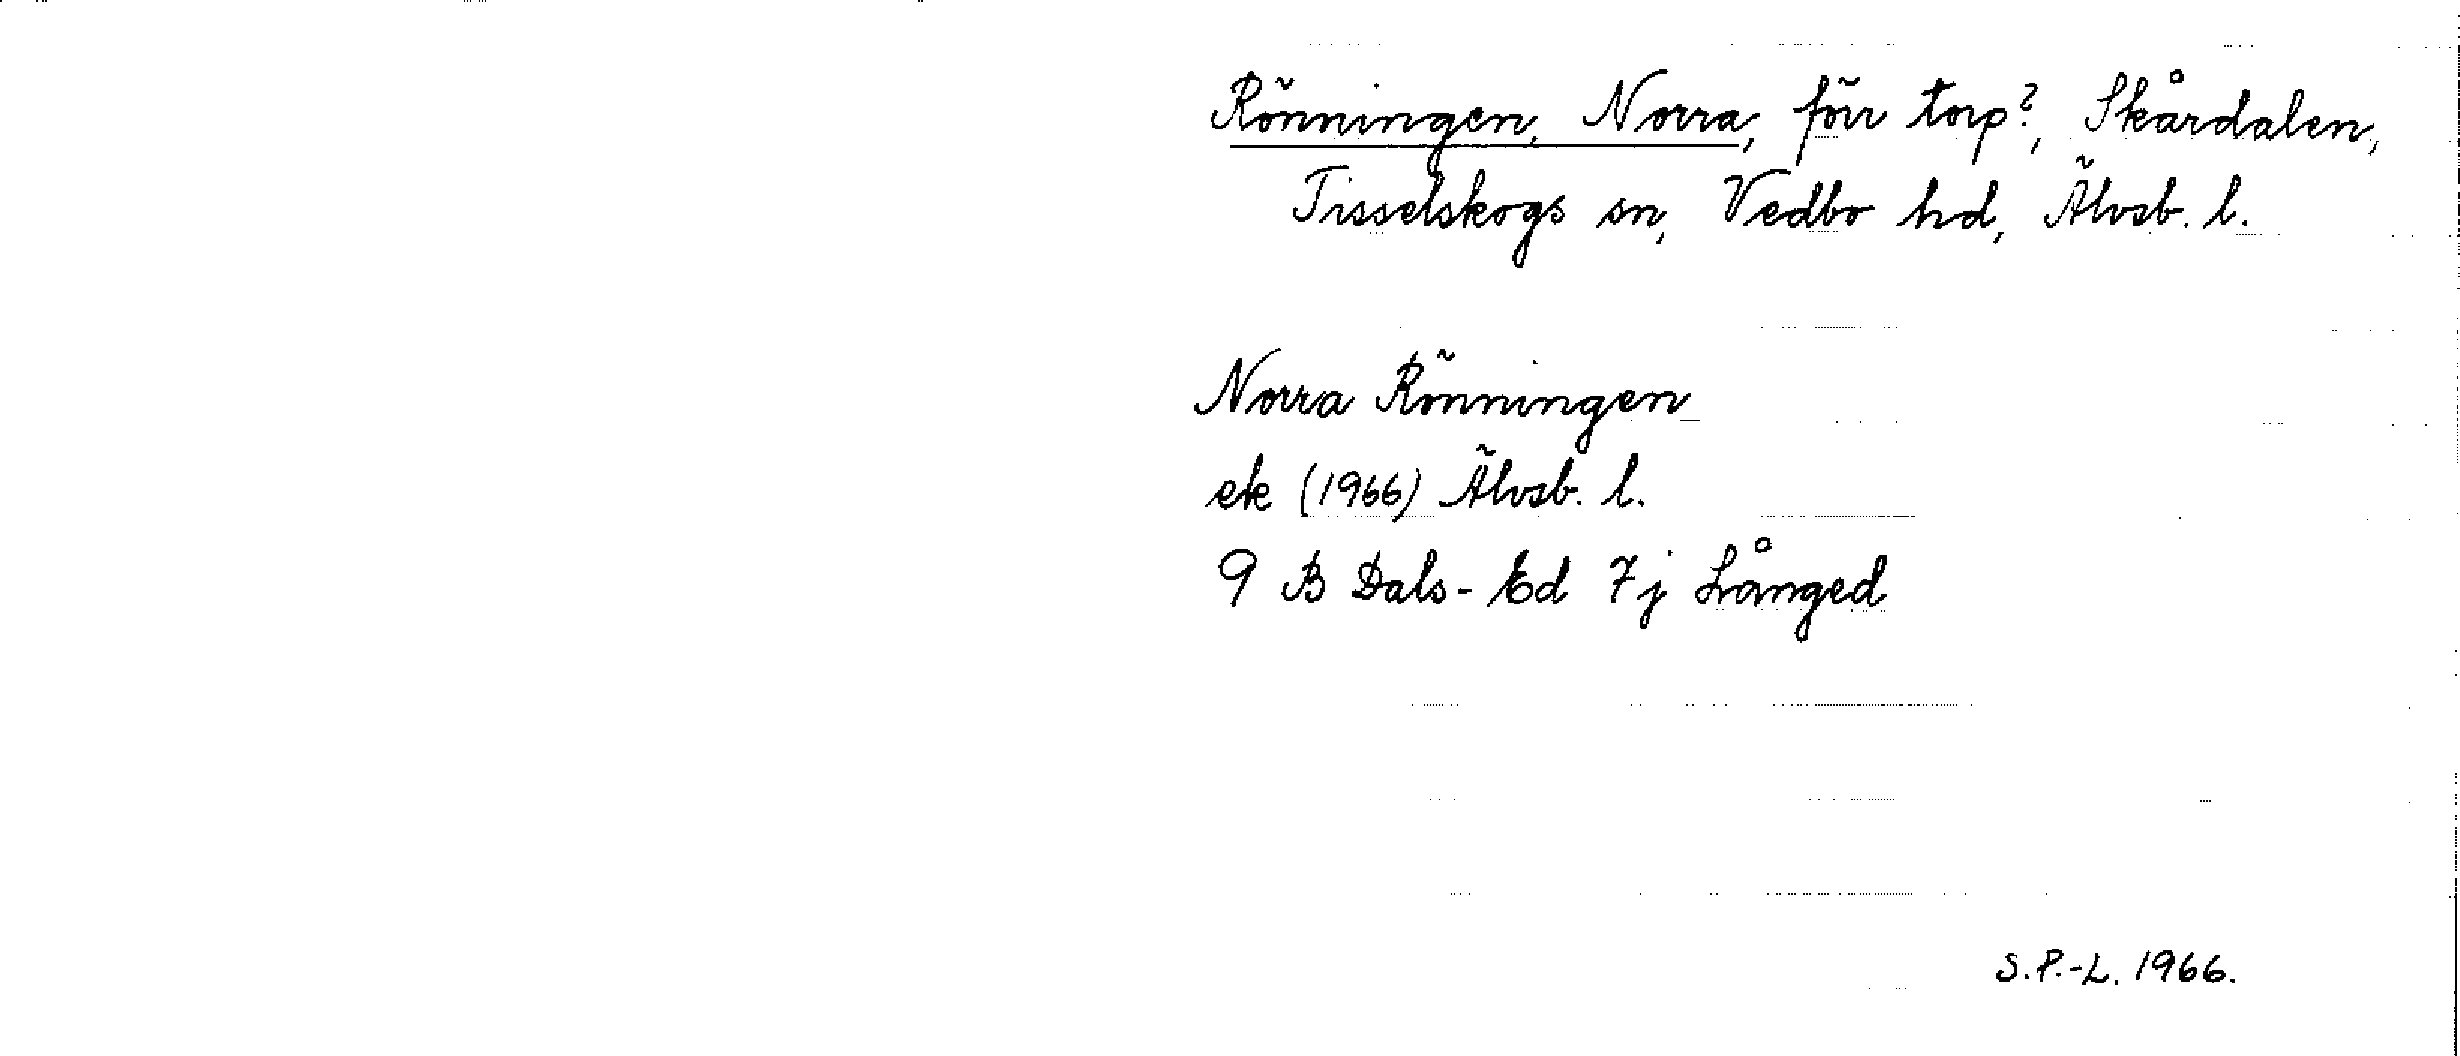 Rönningen, Norra, förr torp?, Skårdalen,
Tisselskogs sn, Vedbo hd, Älvsb. l.
Norra Rönningen
ek (1966) Älvsb. l.
9 B Dals-Ed 7j Långed
S.P.-L. 1966.